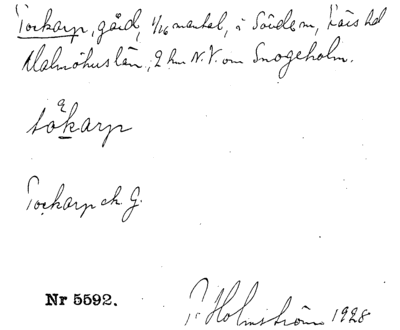 Tockarp, gård, 1/16 mantal, i Sövde sn, Färs hd
Malmöhus län, 2 km N.V. om Snogeholm.
tåkarp
Tockarp ek. G.
Nr 5592.
P. Holmström 1928